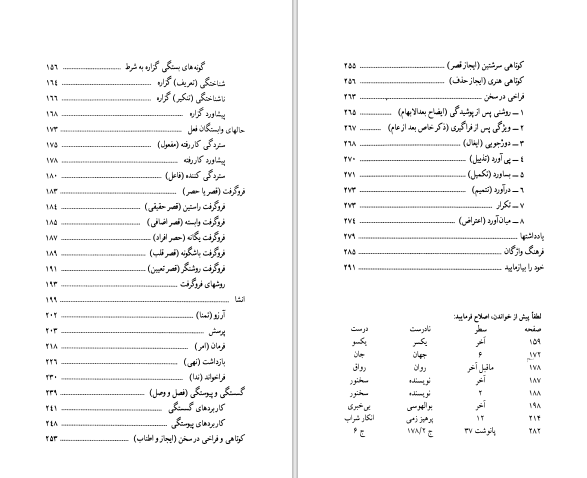 گونه‌های بستگی گزاره به شرط ........ ۱۵۶
شناختگی (تعریف) گزاره ........ ۱۶۴
ناشناختگی (تنکیر) گزاره ........ ۱۶۶
پیشاورد گزاره ........ ۱۶۸
حالهای وابستگان فعل ........ ۱۷۳
ستردگی کاررفته (مفعول) ........ ۱۷۵
پیشاورد کاررفته ........ ۱۷۸
ستردگی کننده (فاعل) ........ ۱۸۰
فروگرفت (قصر یا حصر) ........ ۱۸۳
فروگرفت راستین (قصر حقیقی) ........ ۱۸۴
فروگرفت وابسته (قصر اضافی) ........ ۱۸۵
فروگرفت یگانه (حصر افراد) ........ ۱۸۷
فروگرفت باشگونه (قصر قلب) ........ ۱۸۹
فروگرفت روشنگر (قصر تعیین) ........ ۱۹۱
روشهای فروگرفت ........ ۱۹۳
انشا ........ ۱۹۹
آرزو (تمنا) ........ ۲۰۲
پرسش ........ ۲۰۳
فرمان (امر) ........ ۲۱۸
بازداشت (نهی) ........ ۲۲۶
فراخواند (ندا) ........ ۲۳۰
گسستگی و پیوستگی (فصل و وصل) ........ ۲۳۹
کاربردهای گسستگی ........ ۲۴۱
کاربردهای پیوستگی ........ ۲۴۸
کوتاهی و فراخی در سخن (ایجاز و اطناب) ........ ۲۵۳
کوتاهی سرشتین (ایجاز قصر) ........ ۲۵۵
کوتاهی هنری (ایجاز حذف) ........ ۲۵۶
فراخی در سخن ........ ۲۶۳
۱ ــ روشنی پس از پوشیدگی (ایضاح بعدالابهام) ........ ۲۶۵
۲ ــ ویژگی پس از فراگیری (ذکر خاص بعد از عام) ........ ۲۶۷
۳ ــ دورجویی (ایغال) ........ ۲۶۸
۴ ــ پی آورد (تذییل) ........ ۲۷۰
۵ ــ بساورد (تکمیل) ........ ۲۷۱
۶ ــ درآورد (تتمیم) ........ ۲۷۳
۷ ــ تکرار ........ ۲۷۳
۸ ــ میان‌آورد (اعتراض) ........ ۲۷۴
یادداشتها ........ ۲۷۹
فرهنگ واژگان ........ ۲۸۵
خود را بیازمایید ........ ۲۹۱
لطفاً پیش از خواندن، اصلاح فرمایید:
صفحه سطر نادرست درست
۱۵۹ آخر یکسر یکسو
۱۷۲ ۶ جهان جان
۱۷۸ ماقبل آخر روان رواق
۱۸۷ آخر نویسنده سخنور
۱۸۸ ۲ نویسنده سخنور
۱۹۸ آخر بوالهوسی بی‌خبری
۲۱۴ ۱۲ پرهیز زمی انکار شراب
۲۸۲ پانوشت ۳۷ ج ۱۷۸/۲ ج ۶